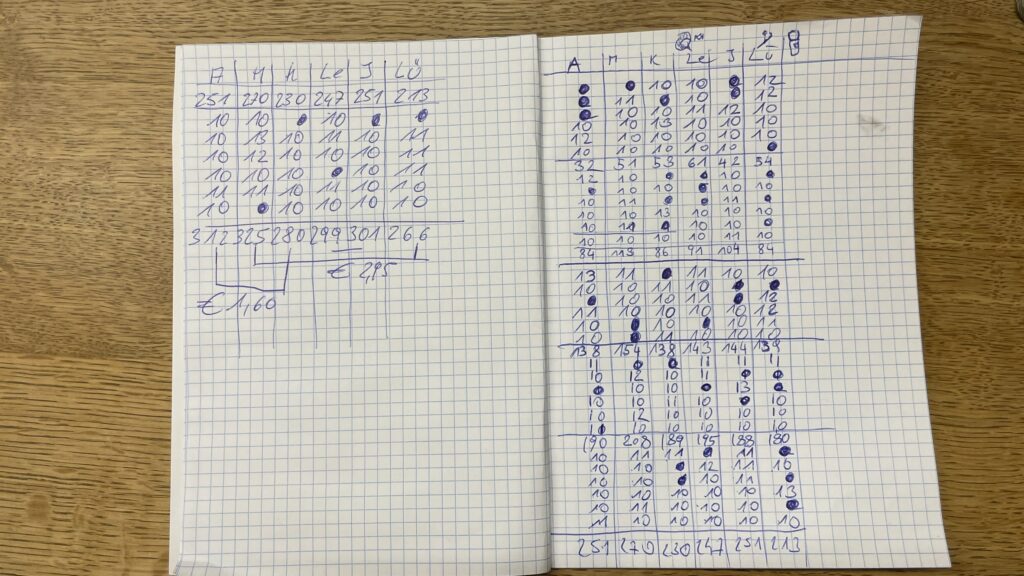 A M K Le J Lü
251 270 230 247 251 213
10 10 ● 10 ● ●
10 13 10 11 10 11
10 12 10 10 10 11
10 10 10 ● 10 11
11 11 10 11 10 10
10 ● 10 10 10 10
312 325 280 299 301 266
€ 2,95
€ 1,60
A M K Le J Lü
● ● 10 10 ● 12
● 11 ● 10 ● 12
● 10 10 11 12 10
10 10 13 10 10 10
12 10 10 10 10 10
10 10 10 10 10 ●
32 51 53 61 42 54
12 10 ● ● 10 ●
● 10 10 ● 10 10
10 11 ● ● 11 ●
10 10 13 10 10 10
10 11 ● 10 10 ●
10 10 10 10 11 10
84 113 86 91 104 84
13 11 ● 11 10 10
10 10 11 10 ● ●
● 10 10 11 ● 12
11 10 10 10 10 12
10 ● 10 ● 10 11
10 ● 11 10 10 10
138 154 138 143 144 139
11 ● ● 11 11 11
10 12 10 11 ● ●
● 10 10 ● 13 ●
10 10 11 10 ● 10
10 12 10 10 10 10
● 10 10 10 10 10
190 208 189 195 188 180
10 11 11 ● 11 ●
10 10 ● 12 11 10
10 10 ● 10 11 ●
10 10 10 10 10 13
10 11 10 10 10 ●
11 10 10 10 10 10
251 270 230 247 251 213